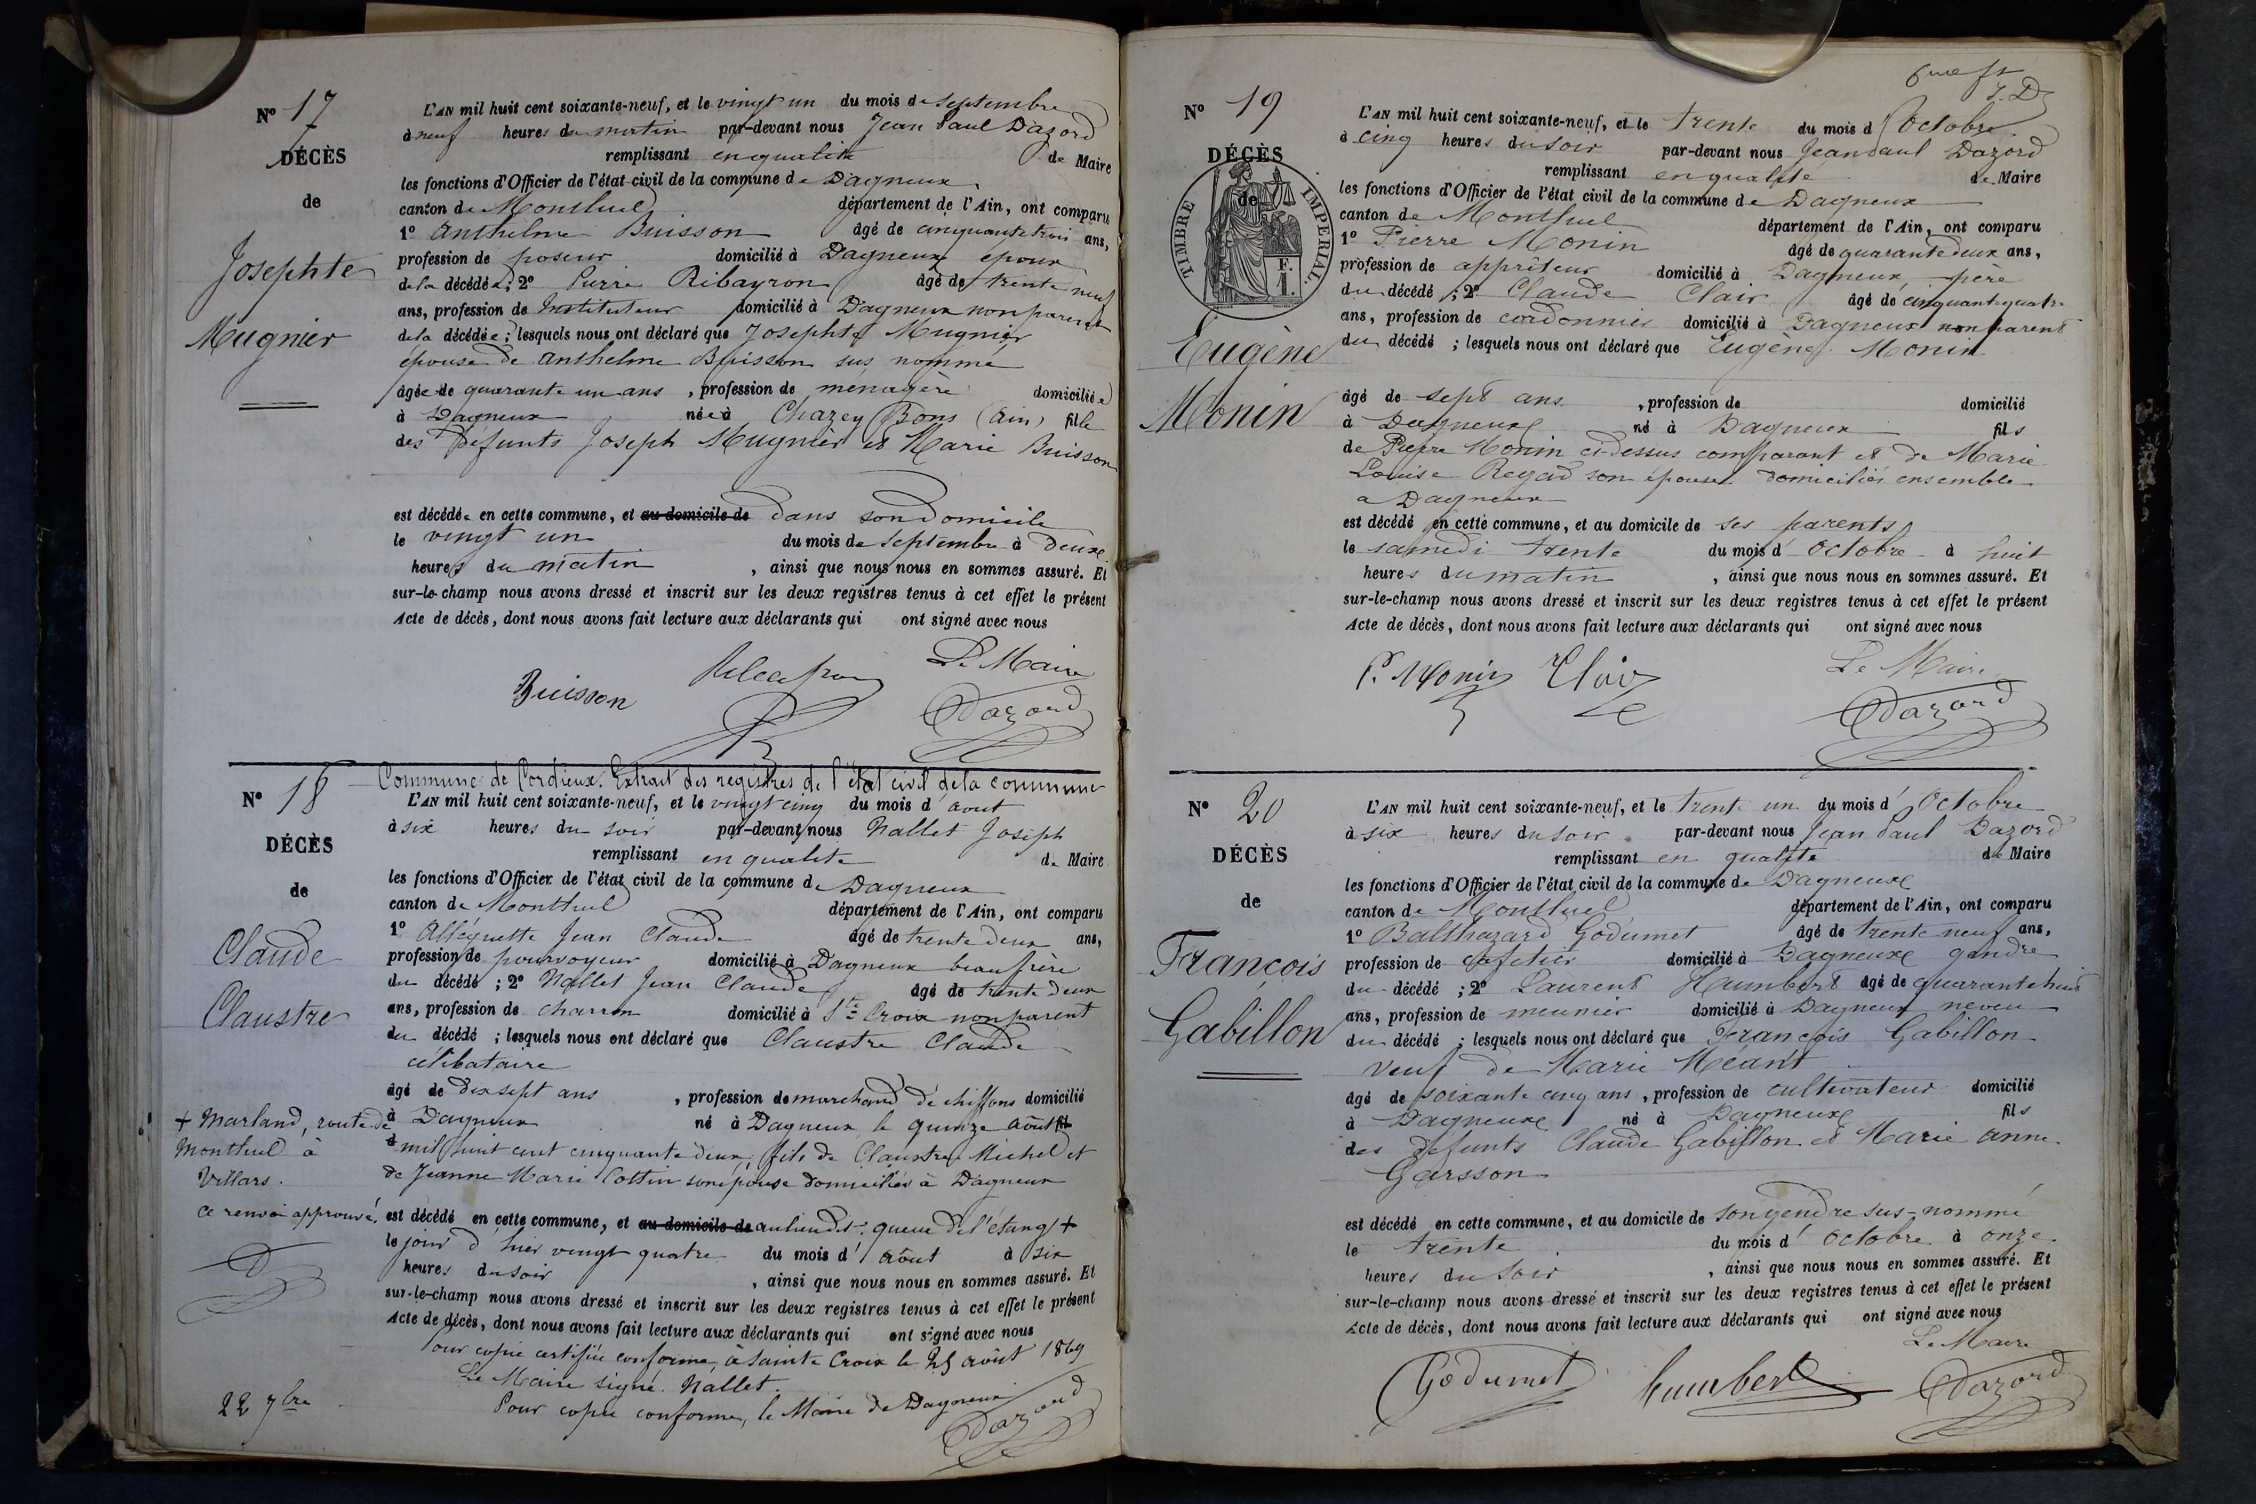 N° 17
DÉCÈS
de
Josephte
Mugnier
L'AN mil huit cent soixante-neuf, et le vingt un du mois de septembre
à neuf heures du matin par-devant nous Jean Paul Dazord
remplissant en qualité de Maire
les fonctions d'Officier de l'état civil de la commune de Dagneux
canton de Montluel département de l'Ain, ont comparu
1° Anthelme Buisson âgé de cinquante trois ans,
profession de poseur domicilié à Dagneux époux
de la décédée; 2° Pierre Ribayron âgé de trente neuf
ans, profession de Instituteur domicilié à Dagneux non parent
de la décédée; lesquels nous ont déclaré que Josephte Mugnier
épouse de Anthelme Buisson sus nommé
âgée de quarante un ans, profession de ménagère domiciliée
à Dagneux née à Chazey Bons (Ain) fille
des défunts Joseph Mugnier et Marie Buisson
est décédée en cette commune, et au domicile de dans son domicile
le vingt un du mois de septembre à deux
heures du matin, ainsi que nous nous en sommes assuré. Et
sur-le-champ nous avons dressé et inscrit sur les deux registres tenus à cet effet le présent
Acte de décès, dont nous avons fait lecture aux déclarants qui ont signé avec nous
Le Maire
Buisson
Dazord
N° 18
DÉCÈS
de
Claude
Claustre
Commune de Cordieux. Extrait des registres de l'état civil de la commune
L'AN mil huit cent soixante-neuf, et le vingt cinq du mois d'aout
à six heures du soir par-devant nous Nallet Joseph
remplissant en qualité de Maire
les fonctions d'Officier de l'état civil de la commune de Dagneux
canton de Montluel département de l'Ain, ont comparu
1° Alléguette Jean Claude âgé de trente deux ans,
profession de pourvoyeur domicilié à Dagneux beau frère
du décédé; 2° Nallet Jean Claude âgé de trente deux
ans, profession de charron domicilié à Ste Croix non parent
du décédé; lesquels nous ont déclaré que Claustre Claude
célibataire
âgé de dix sept ans, profession de marchand de chiffons domicilié
à Dagneux né à Dagneux le quinze août
mil huit cent cinquante deux, fils de Claustre Michel et
de Jeanne Marie Cottin son épouse domiciliés à Dagneux
est décédé en cette commune, et au domicile de au lieu dit: queue de l'étang +
le jour d'hier vingt quatre du mois d'août à six
heures du soir, ainsi que nous nous en sommes assuré. Et
sur-le-champ nous avons dressé et inscrit sur les deux registres tenus à cet effet le présent
Acte de décès, dont nous avons fait lecture aux déclarants qui ont signé avec nous
Pour copie certifiée conforme, à Sainte Croix le 25 août 1869
Le Maire signé. Nallet.
Pour copie conforme, le Maire de Dagneux
Dazord
+ Marland, route de
Montluel à
Villars.
ce renvoi approuvé.
D
22 7bre
N° 19
DÉCÈS
de
TIMBRE IMPÉRIAL
Eugène
Monin
L'AN mil huit cent soixante-neuf, et le trente du mois d'Octobre
à cinq heures du soir par-devant nous Jean Paul Dazord
remplissant en qualité de Maire
les fonctions d'Officier de l'état civil de la commune de Dagneux
canton de Montluel département de l'Ain, ont comparu
1° Pierre Monin âgé de quarante deux ans,
profession de apprêteur domicilié à Dagneux, père
du décédé; 2° Claude Clair âgé de cinquante quatre
ans, profession de cordonnier domicilié à Dagneux non parent
du décédé; lesquels nous ont déclaré que Eugène Monin
âgé de sept ans, profession de domicilié
à Dagneux né à Dagneux fils
de Pierre Monin ci-dessus comparant et de Marie
Louise Regad son épouse domiciliés ensemble
à Dagneux
est décédé en cette commune, et au domicile de ses parents
le samedi trente du mois d'octobre à huit
heures du matin, ainsi que nous nous en sommes assuré. Et
sur-le-champ nous avons dressé et inscrit sur les deux registres tenus à cet effet le présent
Acte de décès, dont nous avons fait lecture aux déclarants qui ont signé avec nous
P. Monin Clair Le Maire
Dazord
N° 20
DÉCÈS
de
François
Gabillon
L'AN mil huit cent soixante-neuf, et le trente un du mois d'Octobre
à six heures du soir par-devant nous Jean Paul Dazord
remplissant en qualité de Maire
les fonctions d'Officier de l'état civil de la commune de Dagneux
canton de Montluel département de l'Ain, ont comparu
1° Balthazard Godumet âgé de trente neuf ans,
profession de cafetier domicilié à Dagneux gendre
du décédé; 2° Laurent Humbert âgé de quarante huit
ans, profession de meunier domicilié à Dagneux neveu
du décédé; lesquels nous ont déclaré que François Gabillon
veuf de Marie Méant
âgé de soixante cinq ans, profession de cultivateur domicilié
à Dagneux né à Dagneux fils
des défunts Claude Gabillon et Marie Anne
Garsson
est décédé en cette commune, et au domicile de son gendre sus-nommé
le trente du mois d'octobre à onze
heures du soir, ainsi que nous nous en sommes assuré. Et
sur-le-champ nous avons dressé et inscrit sur les deux registres tenus à cet effet le présent
Acte de décès, dont nous avons fait lecture aux déclarants qui ont signé avec nous
Le Maire
Godumet humbert Dazord